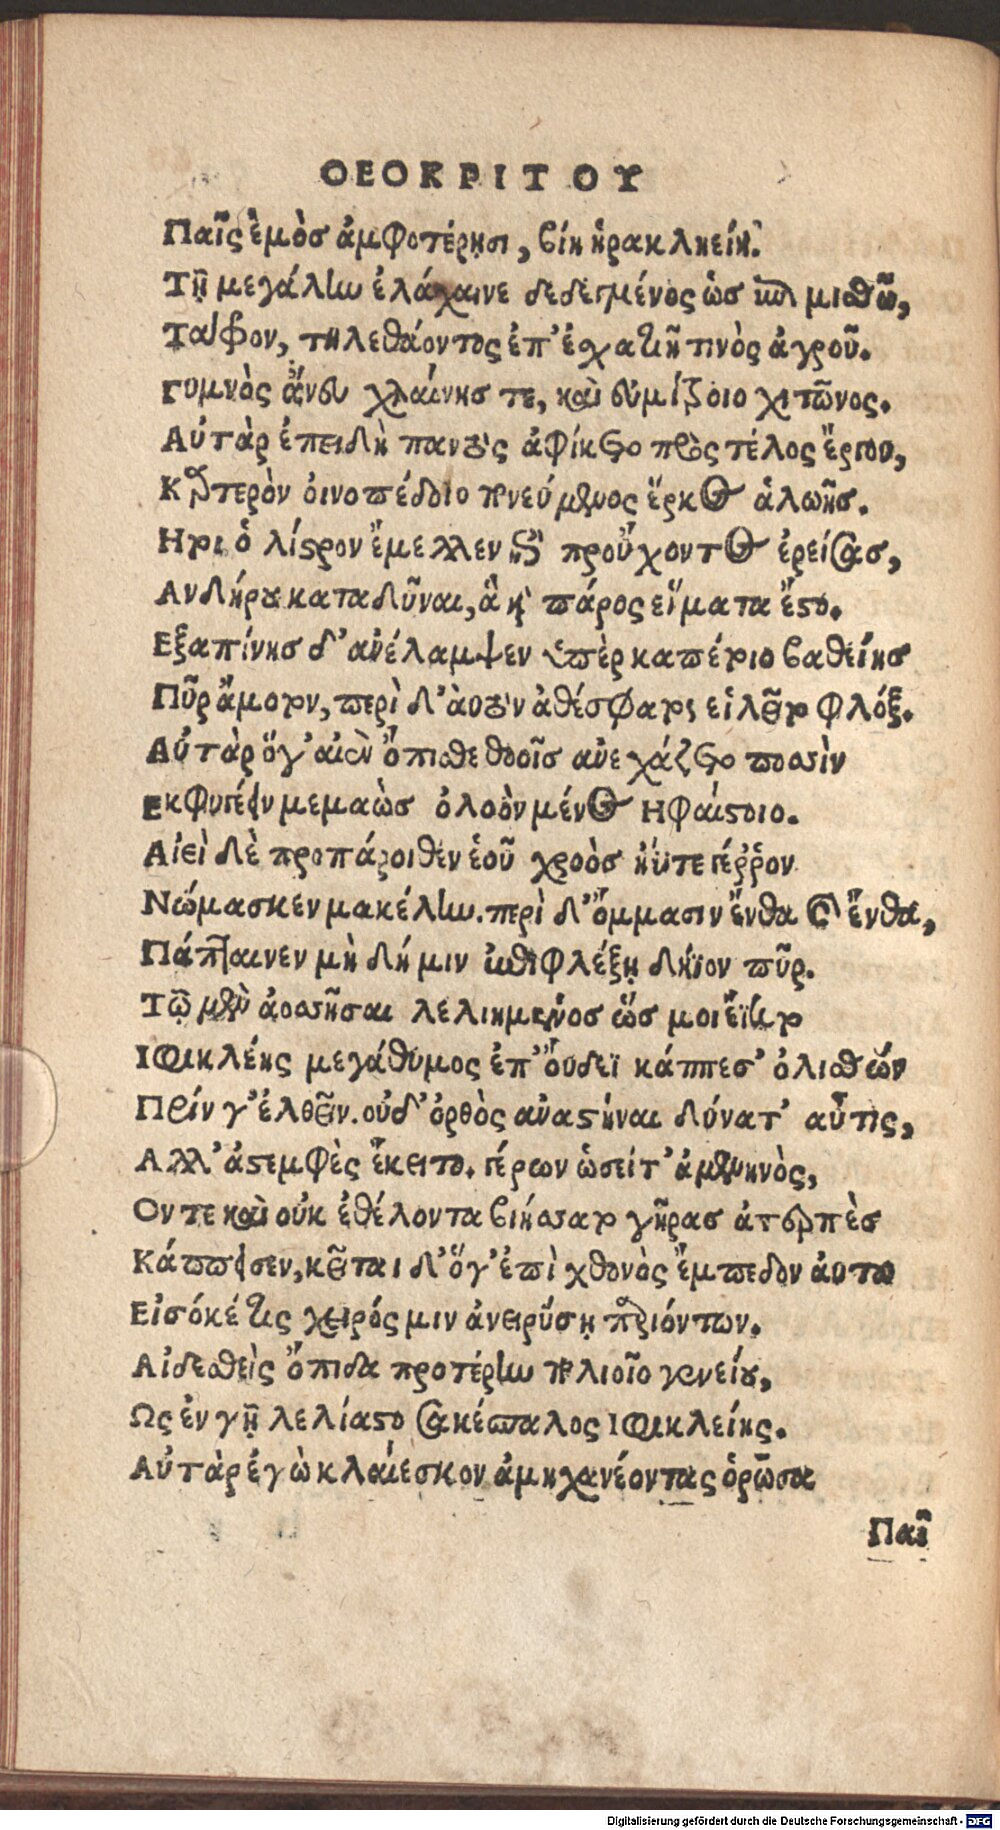 ΘΕΟΚΡΙΤΟΥ
Παῖς ἐμὸσ ἀμφοτέρῃσι, βίη ἡρακληείη.
Τῇ μεγάλην ἐλάχαινε δεδεγμένος ὡσ ἐπὶ μισθῷ,
Τάφρον, τηλεθάοντος ἐπ' ἐχατιῇ τινὸς ἀγροῦ.
Γυμνὸς ἄνευ χλαίνησ τε, καὶ εὐμίζοιο χιτῶνος.
Αὐτὰρ ἐπειδὴ παντὸς ἀφίκετο πρὸς τέλος ἔργου,
Καρτερὸν οἰνοπέδοιο πονεύμενος ἕρκος ἀλωῆσ.
Ητοι ὁ λίστρον ἔμελλεν ἐπὶ προὔχοντος ἐρείσασ,
Ανδήρου καταδῦναι, ἃ καὶ πάρος εἵματα ἕστο.
Εξαπίνησ δ' ἀνέλαμψεν ὑπὲρ καπέτοιο βαθείησ
Πῦρ ἄμοτον, περὶ δ' αὐτὸν ἀθέσφατος εἰλεῖτο φλόξ.
Αὐτὰρ ὅγ' αἰὲν ὄπισθε θοοῖσ ἀνεχάζετο ποσὶν
Εκφυγέειν μεμαὼσ ὀλοὸν μένος Ηφαίστοιο.
Αἰεὶ δὲ προπάροιθεν ἑοῦ χροὸσ ἠΰτε γέρρον
Νώμασκεν μακέλην. περὶ δ' ὄμμασιν ἔνθα καὶ ἔνθα,
Πάπταινεν μὴ δή μιν ἐπιφλέξῃ δήϊον πῦρ.
Τῷ μὲν ἀοσσῆσαι λελιημένοσ ὥσ μοι ἔϊκτο
Ιφικλέης μεγάθυμος ἐπ' οὔδεϊ κάππεσ' ὀλισθών
Πρίν γ' ἐλθεῖν. οὐδ' ὀρθὸς ἀναστῆναι δύνατ' αὖτις,
Αλλ' ἀστεμφὲς ἔκειτο. γέρων ὡσείτ' ἀμενηνὸς,
Ον τε καὶ οὐκ ἐθέλοντα βιήσατο γῆρασ ἀτερπὲσ
Κάππεσεν, κεῖται δ' ὅγ' ἐπὶ χθονὸς ἔμπεδον αὔτω
Εἰσόκέ τις χειρός μιν ἀνειρύσῃ παριόντων.
Αἰδεσθεὶς ὄπιδα προτέρην πολιοῖο γενείου,
Ως ἐν γῇ λελίαστο σακέσπαλος Ιφικλείης.
Αὐτὰρ ἐγὼ κλαίεσκον ἀμηχανέοντας ὁρῶσα
Παῖ
Digitalisierung gefördert durch die Deutsche Forschungsgemeinschaft - DFG